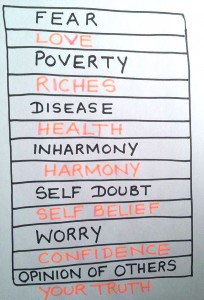 FEAR
LOVE
POVERTY
RICHES
DISEASE
HEALTH
INHARMONY
HARMONY
SELF DOUBT
SELF BELIEF
WORRY
CONFIDENCE
OPINION OF OTHERS
YOUR TRUTH